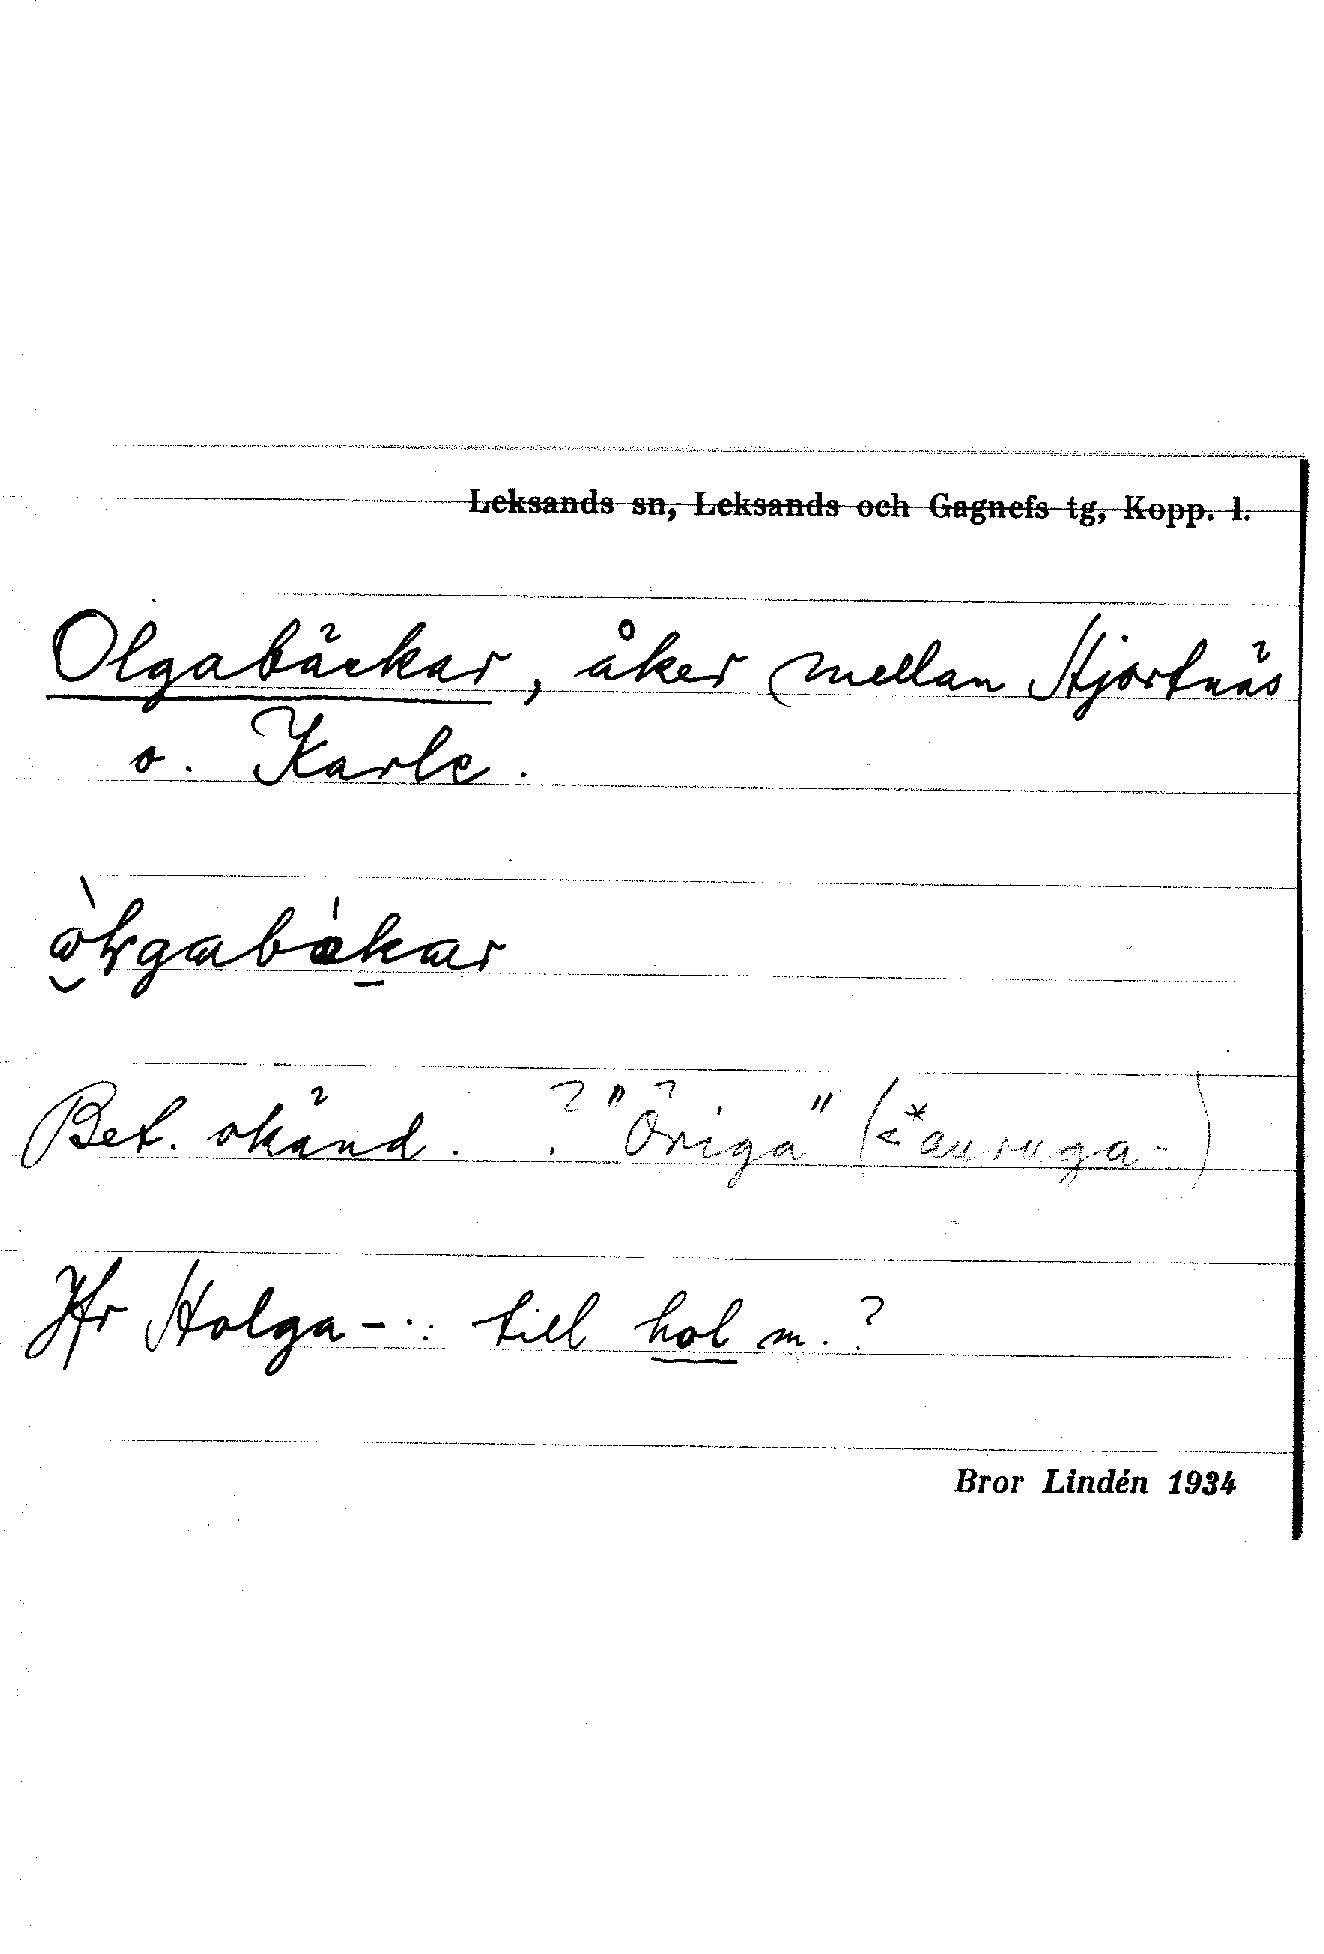 Leksands sn, Leksands och Gagnefs tg, Kopp. l.
Olgabäckar, åker mellan Hjortnäs
o. Karle.
Bet. okänd. ? "Öriga" (<*auruga-)
Jfr Holga-: till hol m.?
Bror Lindén 1934